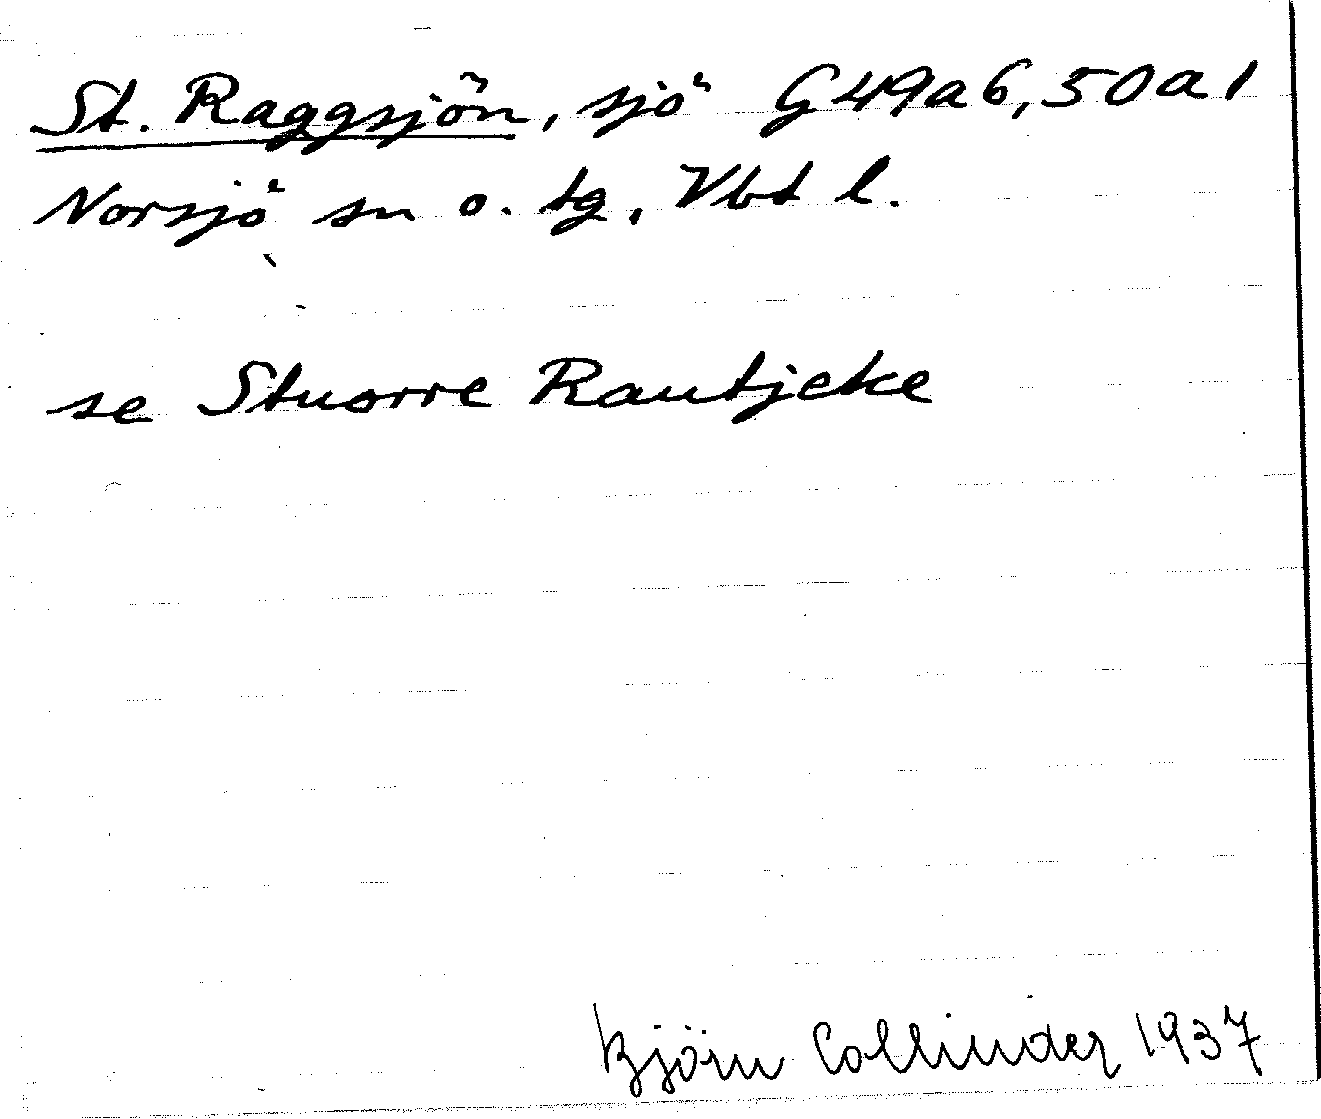 St. Raggsjön, sjö G49a6, 50a1
Norsjö sn o. tg, Vbt l.
se Stuorre Rautjeke
Björn Collinder 1937